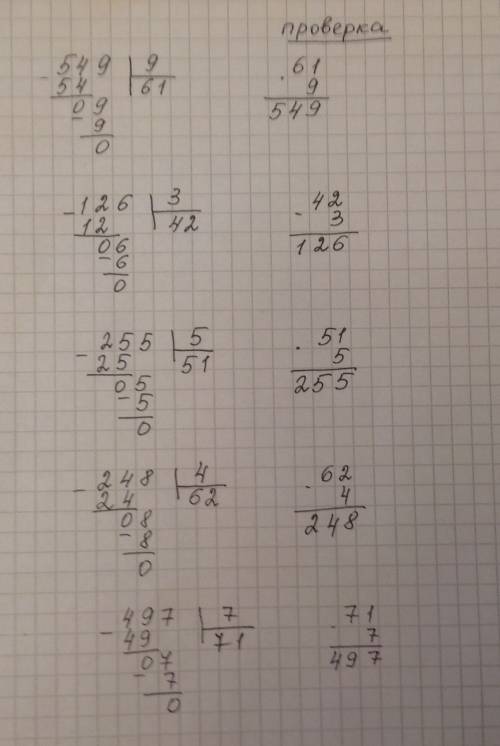 проверка
- 549 | 9 · 61
54 | 61 9
09 549
- 9
0
- 126 | 3 - 42
12 | 42 3
06 126
- 6
0
- 255 | 5 · 51
25 | 51 5
05 255
- 5
0
- 248 | 4 · 62
24 | 62 4
08 248
- 8
0
- 497 | 7 · 71
49 | 71 7
07 497
- 7
0